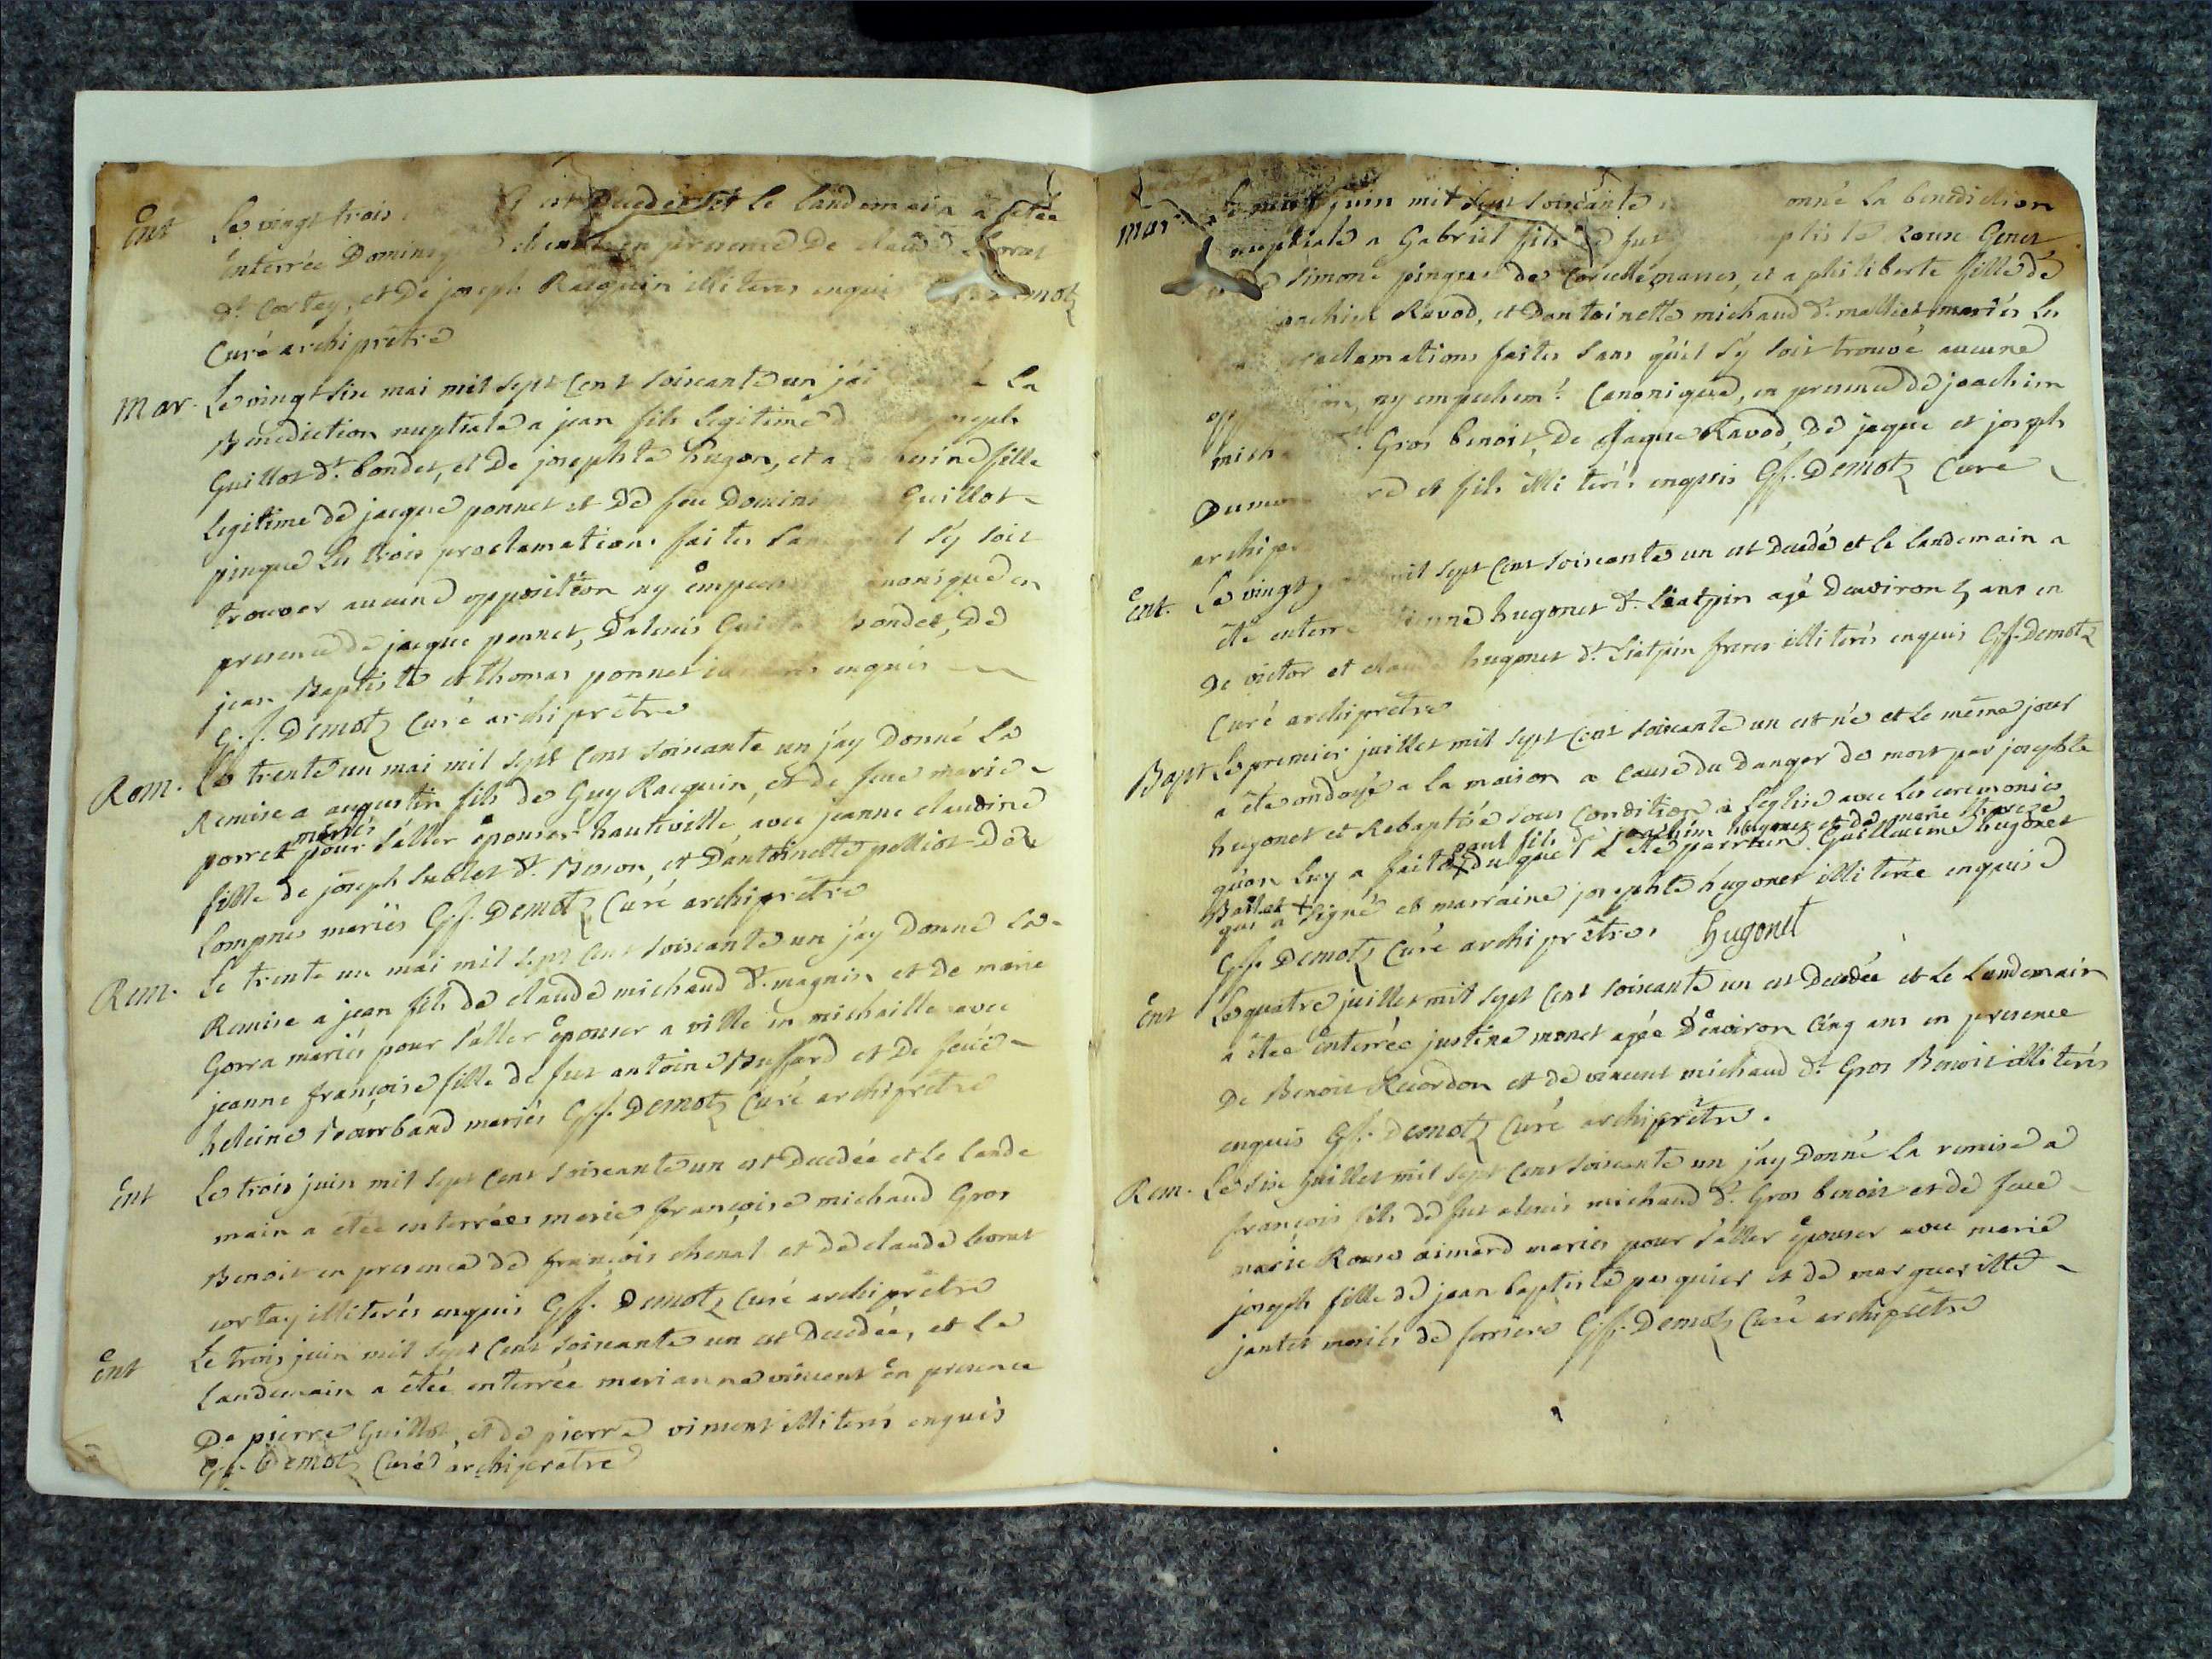 Ent Le vingt trois est decedée et le landemain a etée
enterrée Dominique en presence de claude borrat
dt. Cortey, et de joseph Racquin illiterés enquis Demotz
Curé archiprêtre
Mar. Le vingt six mai mil sept cent soixante un j'ai la
Benediction nuptiale a jean fils legitime de joseph
Guillot dt. bondet, et de josephte hugon, et a fille
legitime de jacque ponnet et de feu Domini Guillot
pingue les trois proclamations faites sans s'y soit
trouver aucune opposition ny empech canonique en
presence de jacque ponnet, d'alexis bondet, de
jean Baptiste et thomas ponnet enquis
G.f. Demotz Curé archiprêtre
Rem. Le trente un mai mil sept cent soixante un j'ay donné la
Remise a augustin fils de Guy Racquin, et de feue marie
mariés
porret pour s'aller épouser hauteville avec jeanne claudine
fille de joseph sublet dt. Simon, et d'antoinette pelliot de
lompnes mariés G.f. Demotz Curé archiprêtre
Rem. Le trente un mai mil sept cent soixante un j'ay donné la
Remise a jean fils de claude michaud dt. magnin et de marie
Gorra mariés pour s'aller épouser a ville en michaille avec
jeanne françoise fille de fut antoine Buffard et de feüe
heleine Bourband mariés G.f. Demotz Curé archiprêtre
Ent Le trois juin mil sept cent soixante un est decedée et le lande
main a etée enterrée marie françoise michaud Gros
Benoit en presence de françois chenal et de claude borrat
cortay illiterés enquis G.f. Demotz Curé archiprêtre
Ent Le trois juin mil sept cent soixante un est decedée, et le
landemain a etée enterrée marianne vincent en presence
De pierre Guillot, et de pierre vincent illiterés enquis
G.f. Demotz Curé archiprêtre
Mar. juin mil sept soixante onné la benediction
nuptiale a Gabriel fils de fut aptiste Roux Genet
simone pingue de mariés, et a philiberte fille de
Ravod, et d'antoinette michaud dt. mariés les
roclamations faites sans qu'il s'y soit trouvé aucune
opp ny empechemt. Canonique, en presence de joachim
mich dt. Gros benoit, de jaque Ravod, de jaque et joseph
Dumo et fils illiterés enquis G.f. Demotz Curé
archipr
Ent. Le vingt mil sept cent soixante un est decedé et le landemain a
été enterré hugonet dt. Liatpin agé d'environ 5 ans en
De victor et claude hugonet dt. Liatpin freres illiterés enquis G.f. Demotz
Curé archiprêtre
Bapt Le premier juillet mil sept cent soixante un est né et le même jour
a été ondoyé a la maison a cause du danger de mort par josephte
hugonet et Rebaptisé sous condition a l'eglise avec les ceremonies
paul fils de joachim hugonet et de marie thereze
qu'on luy a faites du quel a été parrain Guillaume hugonet
Ballet
qui a signé et marraine josephte hugonet illiterée enquise
G.f. Demotz Curé archiprêtre. hugonet
Ent Le quatre juillet mil sept cent soixante un est decedée et le landemain
a étée enterrée justine monet agée d'environ cinq ans en presence
De Benoit Recordon et de vincent michaud dt. Gros Benoit illiterés
enquis G.f. Demotz Curé archiprêtre.
Rem. Le six juillet mil sept cent soixante un j'ay donné la remise a
françois fils de fut alexis michaud dt. Gros benoit et de feue
marie Rouse aimard mariés pour s'aller épouser avec marie
joseph fille de jean baptiste pasquier et de marguerite
jantet mariés de ferriere G.f. Demotz Curé archiprêtre